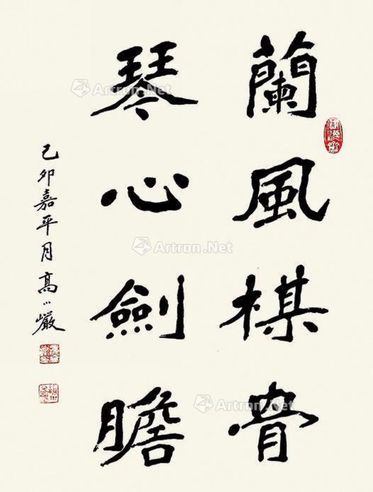 蘭風棋骨
琴心劍膽
己卯嘉平月高小巖
Artron.Net
Artron.Net
Artron.Net
Artron.Net